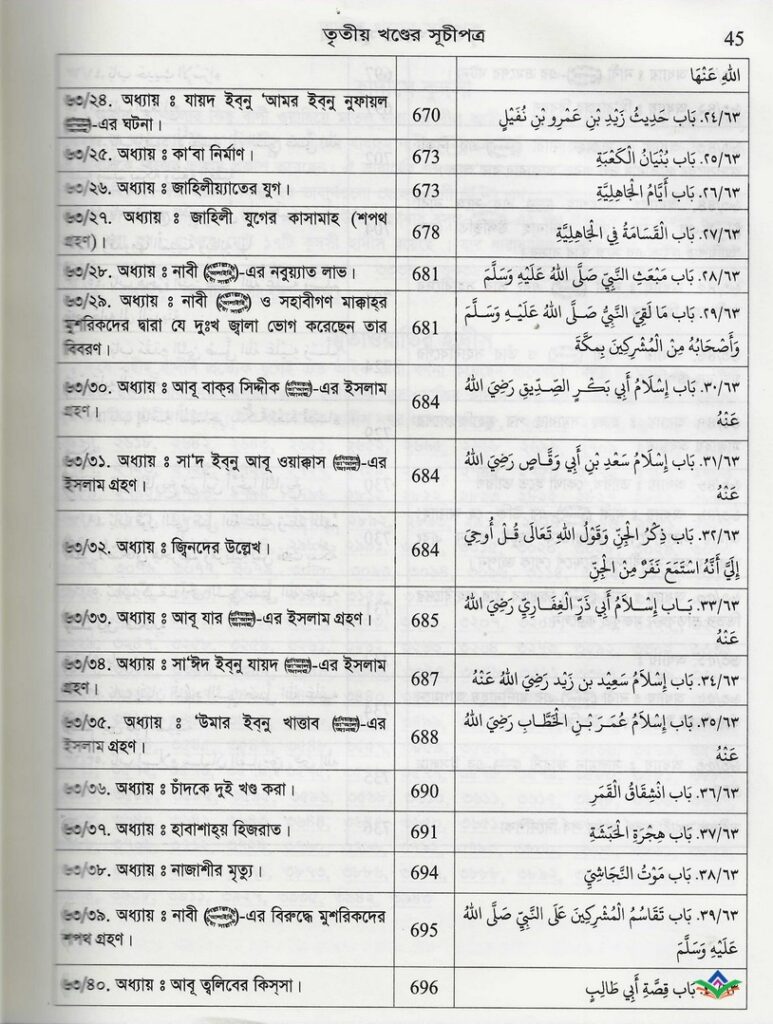 তৃতীয় খণ্ডের সূচীপত্র 45
اللهِ عَنْهَا
৬৩/২৪. অধ্যায় ঃ যায়দ ইব্‌নু ‘আমর ইব্‌নু নুফায়ল
-এর ঘটনা।
670
٢٤/٦٣. بَاب حَدِيثُ زَيْدِ بْنِ عَمْرِو بْنِ نُفَيْلٍ
৬৩/২৫. অধ্যায় ঃ কা‘বা নির্মাণ।
673
٢٥/٦٣. بَاب بُنْيَانُ الْكَعْبَةِ
৬৩/২৬. অধ্যায় ঃ জাহিলীয়্যাতের যুগ।
673
٢٦/٦٣. بَاب أَيَّامُ الْجَاهِلِيَّةِ
৬৩/২৭. অধ্যায় ঃ জাহিলী যুগের কাসামাহ (শপথ
গ্রহণ)।
678
٢٧/٦٣. بَاب الْقَسَامَةُ فِي الْجَاهِلِيَّةِ
৬৩/২৮. অধ্যায় ঃ নাবী -এর নবুয়্যাত লাভ।
681
٢٨/٦٣. بَاب مَبْعَثِ النَّبِيِّ صَلَّى اللهُ عَلَيْهِ وَسَلَّمَ
৬৩/২৯. অধ্যায় ঃ নাবী ও সহাবীগণ মাক্কাহ্‌র
মুশরিকদের দ্বারা যে দুঃখ জ্বালা ভোগ করেছেন তার
বিবরণ।
681
٢٩/٦٣. بَاب مَا لَقِيَ النَّبِيُّ صَلَّى اللهُ عَلَيْهِ وَسَلَّمَ
وَأَصْحَابُهُ مِنْ الْمُشْرِكِينَ بِمَكَّةَ
৬৩/৩০. অধ্যায় ঃ আবূ বাক্‌র সিদ্দীক -এর ইসলাম
গ্রহণ।
684
٣٠/٦٣. بَاب إِسْلَامُ أَبِي بَكْرٍ الصِّدِيقِ رَضِيَ اللهُ
عَنْهُ
৬৩/৩১. অধ্যায় ঃ সা‘দ ইব্‌নু আবূ ওয়াক্কাস -এর
ইসলাম গ্রহণ।
684
٣١/٦٣. بَاب إِسْلَامُ سَعْدِ بْنِ أَبِي وَقَّاصٍ رَضِيَ اللهُ
عَنْهُ
৬৩/৩২. অধ্যায় ঃ জ্বিনদের উল্লেখ।
684
٣٢/٦٣. بَاب ذِكْرُ الْجِنِّ وَقَوْلُ اللهِ تَعَالَى قُلْ أُوحِيَ
إِلَيَّ أَنَّهُ اسْتَمَعَ نَفَرٌ مِنْ الْجِنِّ
৬৩/৩৩. অধ্যায় ঃ আবূ যার -এর ইসলাম গ্রহণ।
685
٣٣/٦٣. بَاب إِسْلَامُ أَبِي ذَرٍّ الْغِفَارِيِّ رَضِيَ اللهُ
عَنْهُ
৬৩/৩৪. অধ্যায় ঃ সা‘ঈদ ইব্‌নু যায়দ -এর ইসলাম
গ্রহণ।
687
٣٤/٦٣. بَاب إِسْلَامُ سَعِيْدِ بن زَيْد رَضِيَ اللهُ عَنْهُ
৬৩/৩৫. অধ্যায় ঃ ‘উমার ইব্‌নু খাত্তাব -এর
ইসলাম গ্রহণ।
688
٣٥/٦٣. بَاب إِسْلَامُ عُمَرَ بْنِ الْخَطَّابِ رَضِيَ اللهُ
عَنْهُ
৬৩/৩৬. অধ্যায় ঃ চাঁদকে দুই খণ্ড করা।
690
٣٦/٦٣. بَاب انْشِقَاقُ الْقَمَرِ
৬৩/৩৭. অধ্যায় ঃ হাবাশাহ্‌য় হিজরাত।
691
٣٧/٦٣. بَاب هِجْرَةِ الْحَبَشَةِ
৬৩/৩৮. অধ্যায় ঃ নাজাশীর মৃত্যু।
694
٣٨/٦٣. بَاب مَوْتُ النَّجَاشِيِّ
৬৩/৩৯. অধ্যায় ঃ নাবী -এর বিরুদ্ধে মুশরিকদের
শপথ গ্রহণ।
695
٣٩/٦٣. بَاب تَقَاسُمُ الْمُشْرِكِينَ عَلَى النَّبِيِّ صَلَّى اللهُ
عَلَيْهِ وَسَلَّمَ
৬৩/৪০. অধ্যায় ঃ আবূ ত্বলিবের কিস্‌সা।
696
بَاب قِصَّةِ أَبِي طَالِبٍ